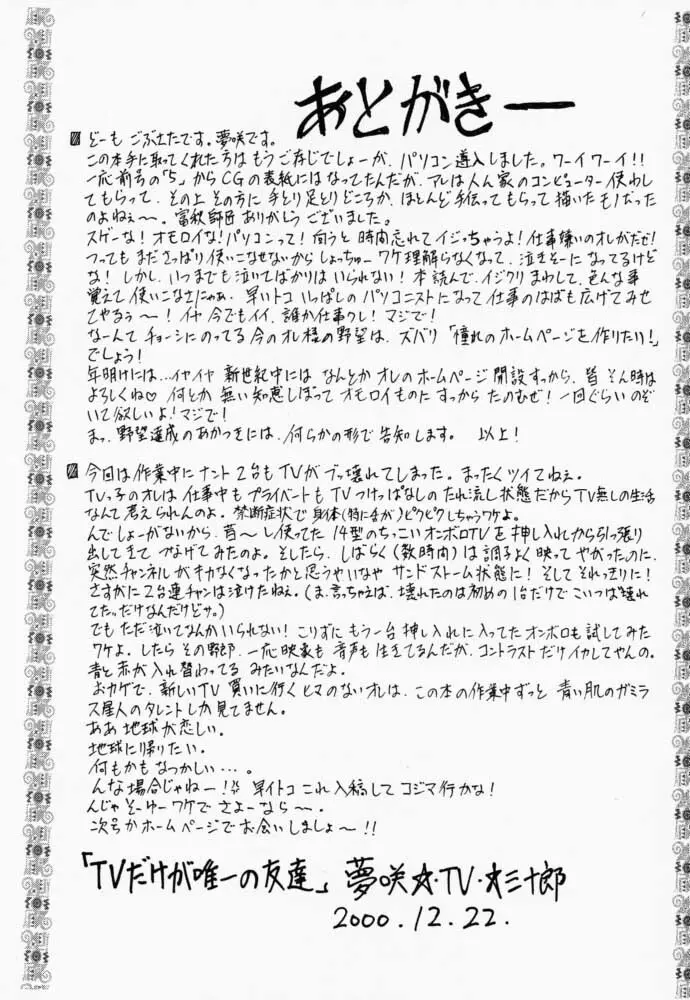 あとがきー
どーも ごぶさたです。夢咲です。
この本手に取ってくれた方は もうご存じでしょーが、パソコン導入しました。ワーイ ワーイ!!
一応前号の「5」からCGの表紙にはなってたんだが、アレは人ん家のコンピューター使わし
てもらって、その上 その方に 手とり足とりどころか、ほとんど手伝ってもらって描いたモノだった
のよねぇ〜。富秋師匠 ありがとう ございました。
スゲーな! オモロイな! パソコンって! 向うと 時間忘れて イジっちゃうよ! 仕事嫌いのオレがだぜ!
つっても まだ さっぱり 使いこなせないから しょっちゅー ワケ理解らなくなって、泣きそーに なってるけど
な! しかし、いつまでも泣いてばかりは いられない! 本読んで、イジクリまわして、色んな事
覚えて 使いこなさにゃぁ、早いトコ いっぱしの パソコニストになって 仕事のはばも広げてみせ
てやるぅ〜! イヤ 今でもイイ、誰か仕事クレ! マジで!
なーんて チョーシにのってる 今のオレ様の野望は、ズバリ「憧れのホームページを作りたい!」
でしょう!
年明けには…イヤイヤ 新世紀中には なんとか オレのホームページ 開設すっから、皆 そん時は
よろしくね♡ 何とか 無い知恵しぼって オモロイものに すっから たのむぜ! 一回ぐらい のぞ
いて欲しいよ! マジで!
まっ、野望達成のあかつきには、何らかの形で 告知します。 以上!
今回は作業中に ナント 2台も TVが ブッ壊れてしまった。まったくツイてねぇ。
TVっ子のオレは 仕事中も プライベートも TV つけっぱなしの たれ流し状態だから TV無しの生活
なんて考えられんのよ。禁断症状で 身体(特に舌が)ピクピクしちゃうワケよ。
んで しょーがないから、昔〜し使ってた 14型のちっこい オンボロTVを 押し入れから引っ張り
出してきて つなげてみたのよ。そしたら、しばらく(数時間)は調子よく映って やがったのに、
突然チャンネルが キカなくなったかと思うやいなや サンドストーム状態に! そして それっきりに!
さすがに 2台連チャンは泣けたねぇ。(ま、言っちゃえば、壊れたのは初めの1台だけで こいつは“壊れ
てた”だけなんだけどサ。)
でも ただ泣いてなんか いられない! こりずに もう一台 押し入れに入ってたオンボロも試してみた
ワケよ。したら その野郎、一応 映像も 音声も 生きてるんだが、コントラストだけイカレてやんの。
青と赤が 入れ替わってる みたいなんだよ。
おかげで、新しいTV 買いに行く ヒマのないオレは、この本の作業中ずっと 青い肌のガミラ
ス星人のタレントしか見てません。
ああ 地球が恋しい。
地球に帰りたい。
何もかも なつかしい…。
んな場合じゃねー! 早イトコ これ入稿して コジマ行かな!
んじゃ そーゆー ワケで さよーなら〜。
次号か ホームページで お会いしましょ〜!!
「TVだけが唯一の友達」 夢咲☆・TV・☆三十郎
2000.12.22.